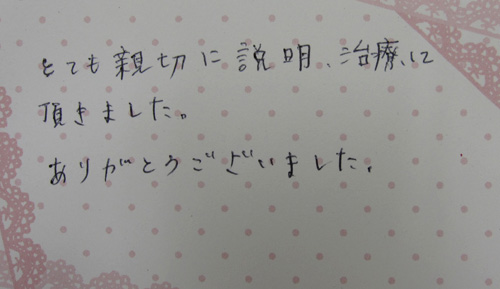 とても親切に説明、治療、に
頂きました。
ありがとうございました。